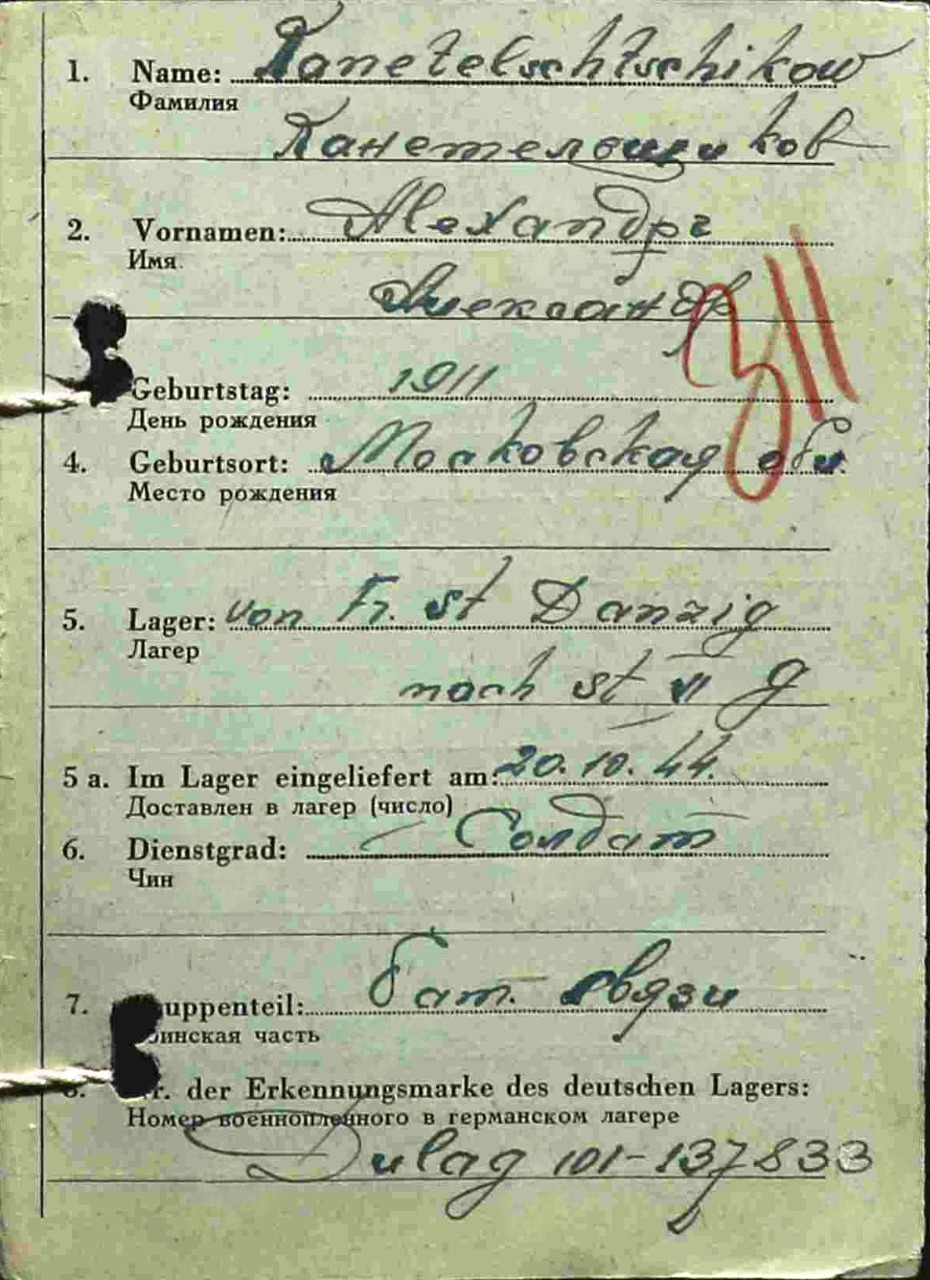 1. Name: Kanetelschtschikow
Фамилия
Канетельщиков
2. Vornamen: Alexандр
Имя
Александр
311
Geburtstag: 1911
День рождения
4. Geburtsort: Московская обл.
Место рождения
5. Lager: von Fr. st Danzig
Лагер
nach st II G
5 a. Im Lager eingeliefert am: 20. 10. 44.
Доставлен в лагер (число)
6. Dienstgrad: Солдат
Чин
7. uppenteil: бат. связи
инская часть
8. r. der Erkennungsmarke des deutschen Lagers:
Номер военнопленного в германском лагере
Dulag 101-137833